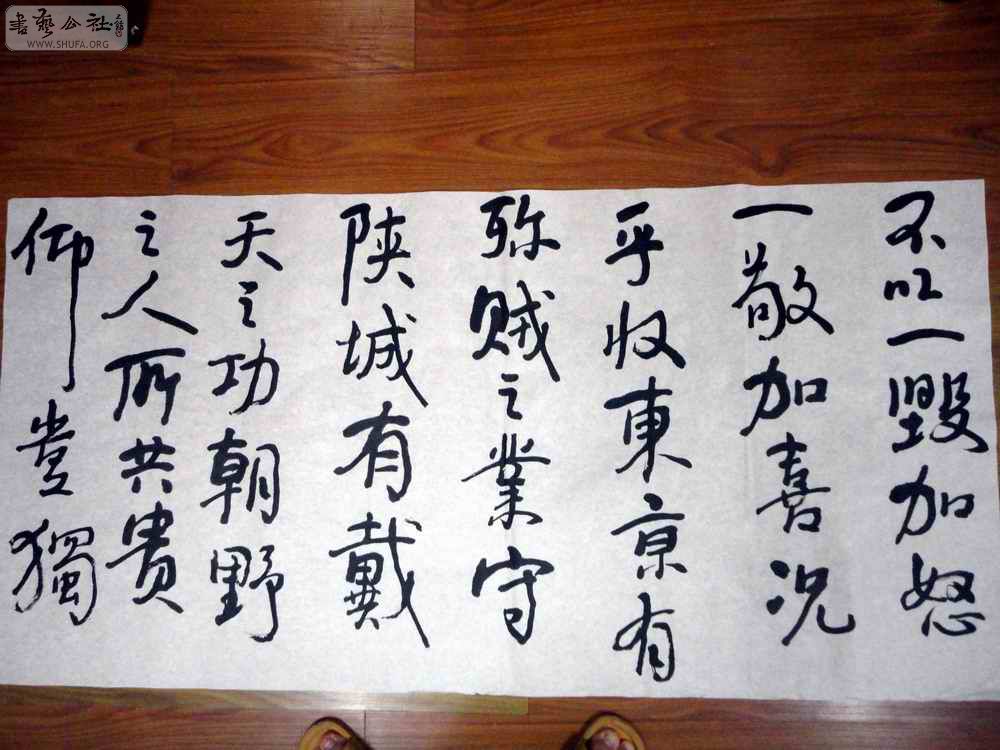 書藝公社
WWW.SHUFA.ORG
不以一毁加怒
一敬加喜况
乎收東京有
殄贼之業守
陕城有戴
天之功朝野
之人所共贵
仰豈獨